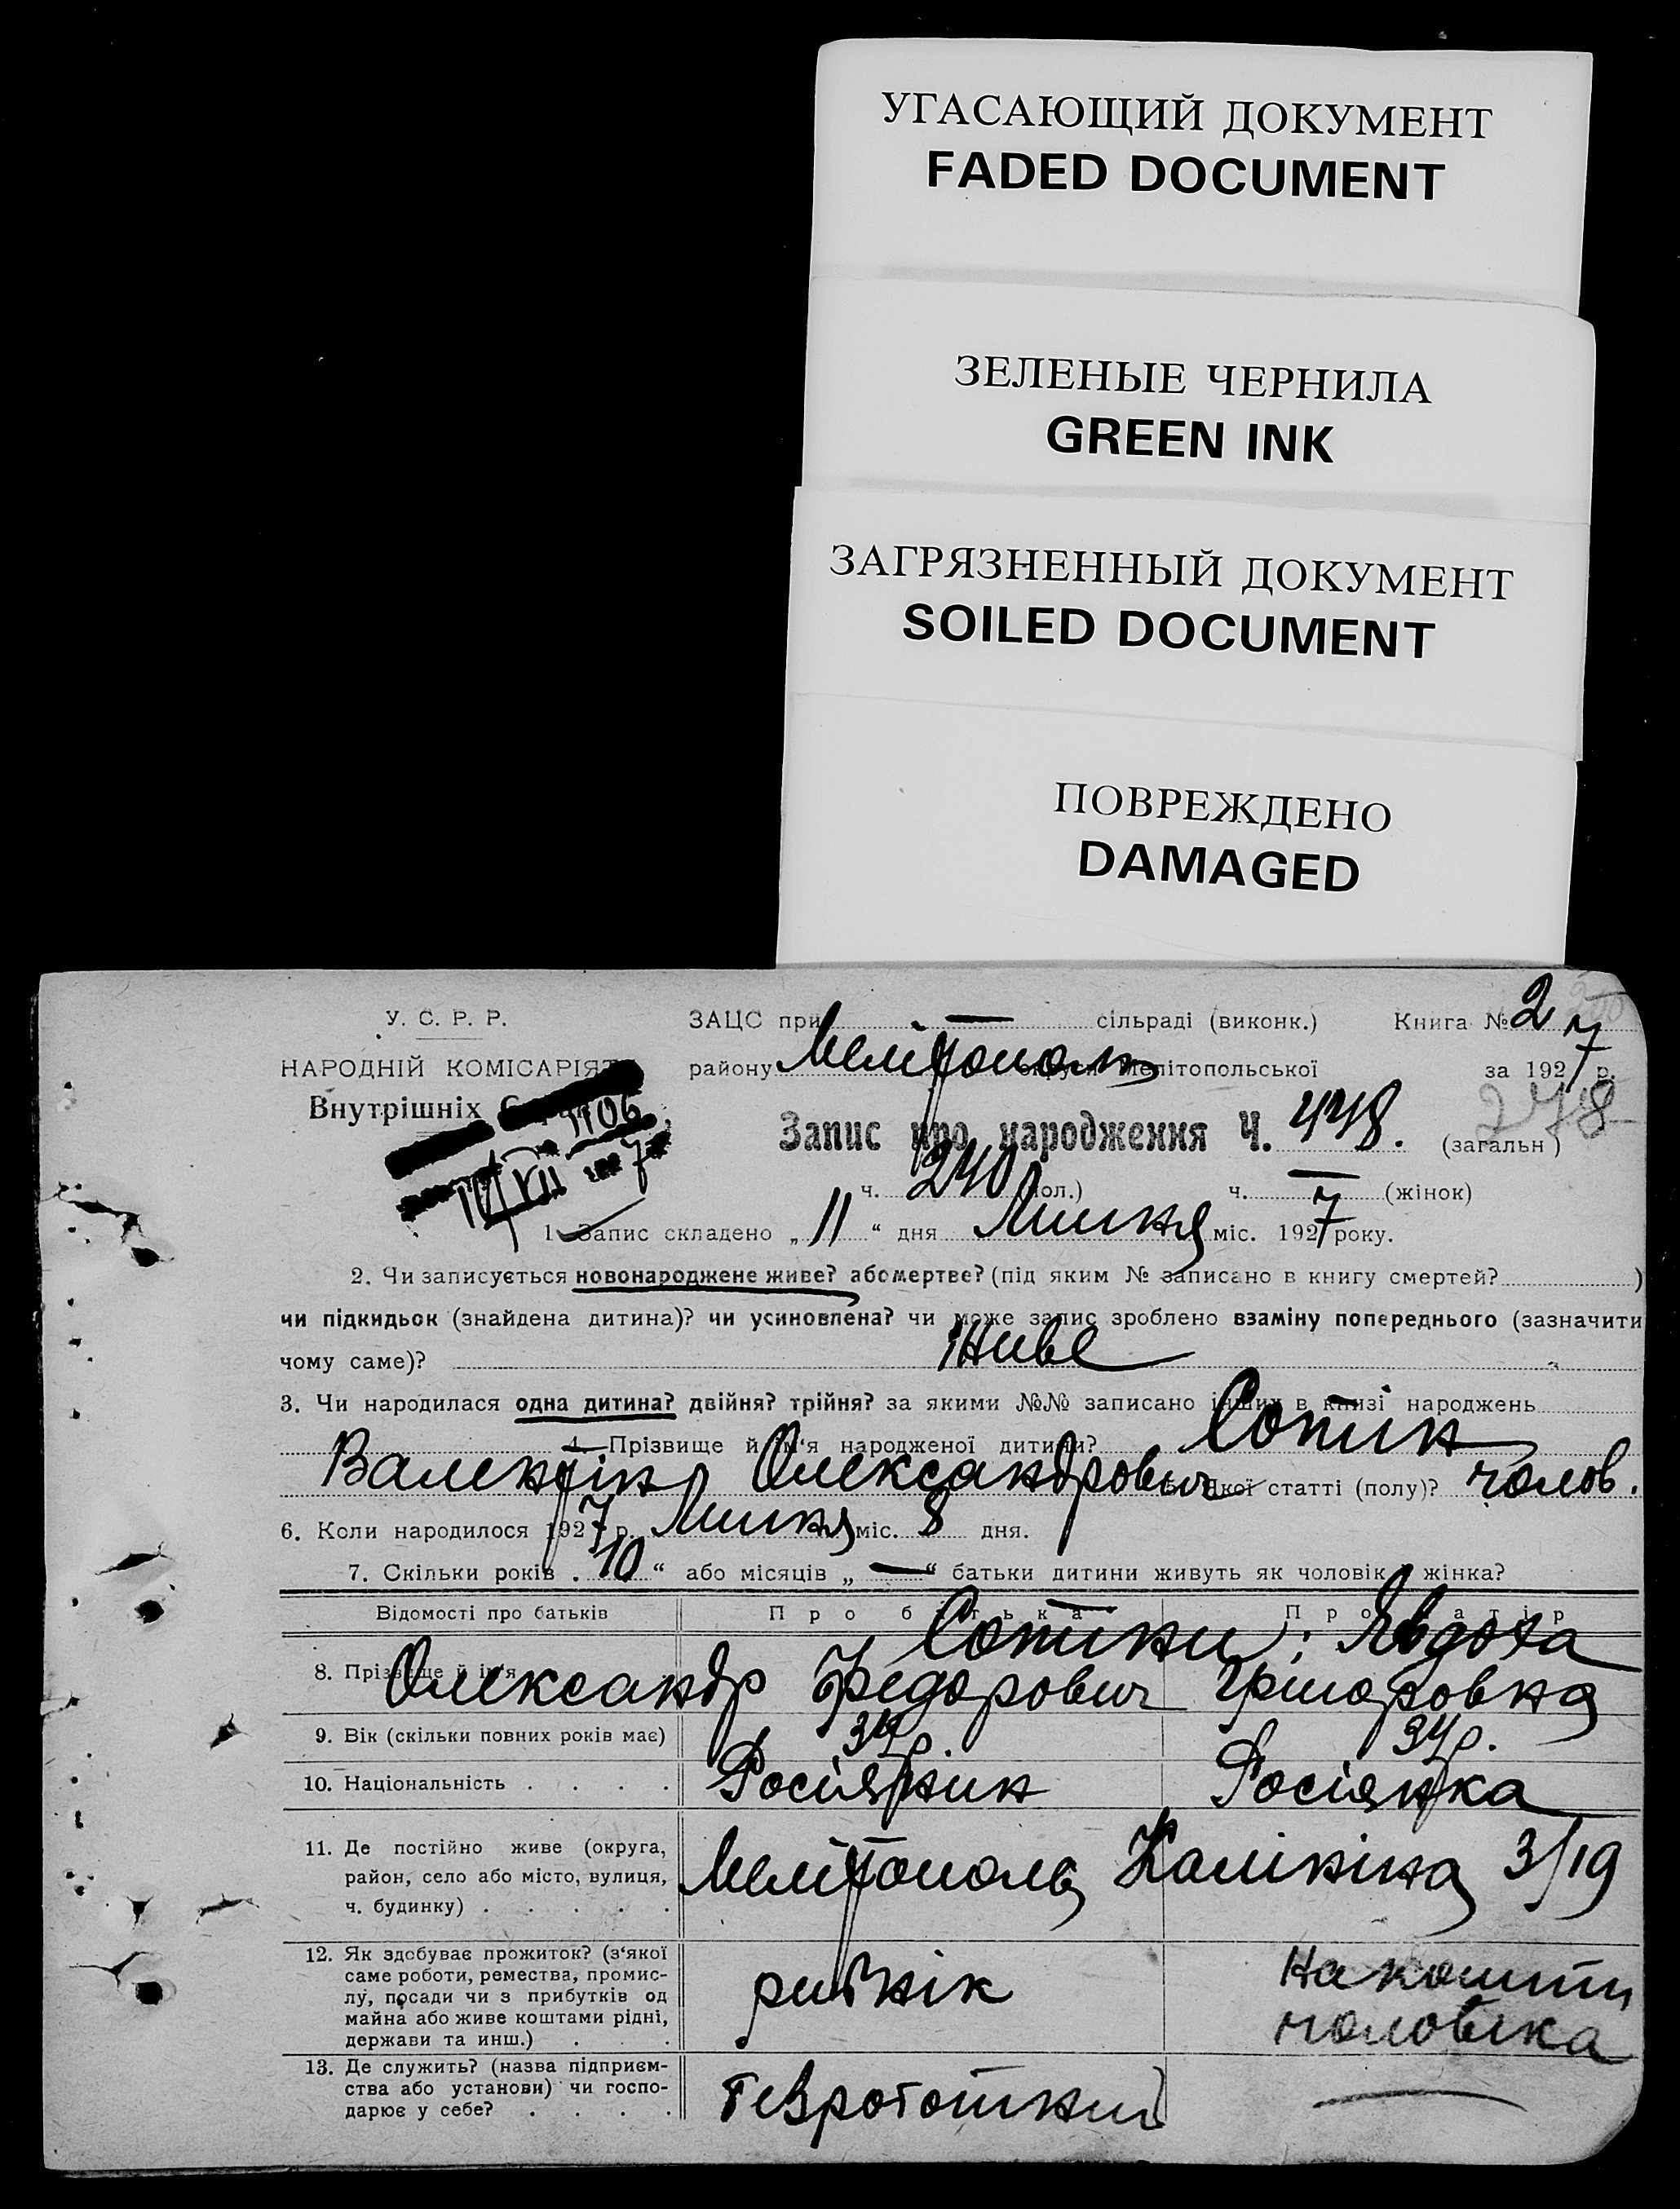 УГАСАЮЩИЙ ДОКУМЕНТ
FADED DOCUMENT
ЗЕЛЕНЫЕ ЧЕРНИЛА
GREEN INK
ЗАГРЯЗНЕННЫЙ ДОКУМЕНТ
SOILED DOCUMENT
ПОВРЕЖДЕНО
DAMAGED
У. С. Р. Р.
НАРОДНІЙ КОМІСАРІЯТ
Внутрішніх
1106
ЗАЦС при — сільраді (виконк.) Книга № 2
району Мелітополь округи Мелітопольської за 1927 р.
278
Запис про народження Ч. 448. (загальн)
ч. 240 (пол.) ч. — (жінок)
1. Запис складено „11“ дня Липня міс. 1927 року.
2. Чи записується новонароджене живе? або мертве? (під яким № записано в книгу смертей? )
чи підкидьок (знайдена дитина)? чи усиновлена? чи може запис зроблено взаміну попереднього (зазначити
чому саме)? Живе
3. Чи народилася одна дитина? двійня? трійня? за якими №№ записано інших в книзі народжень
4. Прізвище й ім'я народженої дитини? Сотин
Валентін Олександрович Якої статті (полу)? чолов.
6. Коли народилося 1927 р. Липня міс. 8 дня.
7. Скільки років „10“ або місяців „—“ батьки дитини живуть як чоловік й жінка?
Відомості про батьків Про батька Про матір
8. Прізвище й ім'я Сотини: Явдоха
Олександр Федорович Григоровна
9. Вік (скільки повних років має) 34р. 34р.
10. Національність . . . . Росіянин Росіянка
11. Де постійно живе (округа,
район, село або місто, вулиця,
ч. будинку) . . . . . Мелітополь Калініна 3/19
12. Як здобуває прожиток? (з'якої
саме роботи, ремества, промис-
лу, посади чи з прибутків од
майна або живе коштами рідні,
держави та инш.) . . . на кошти
чоловіка
13. Де служить? (назва підприєм-
ства або установи) чи госпо-
дарює у себе? . . . .